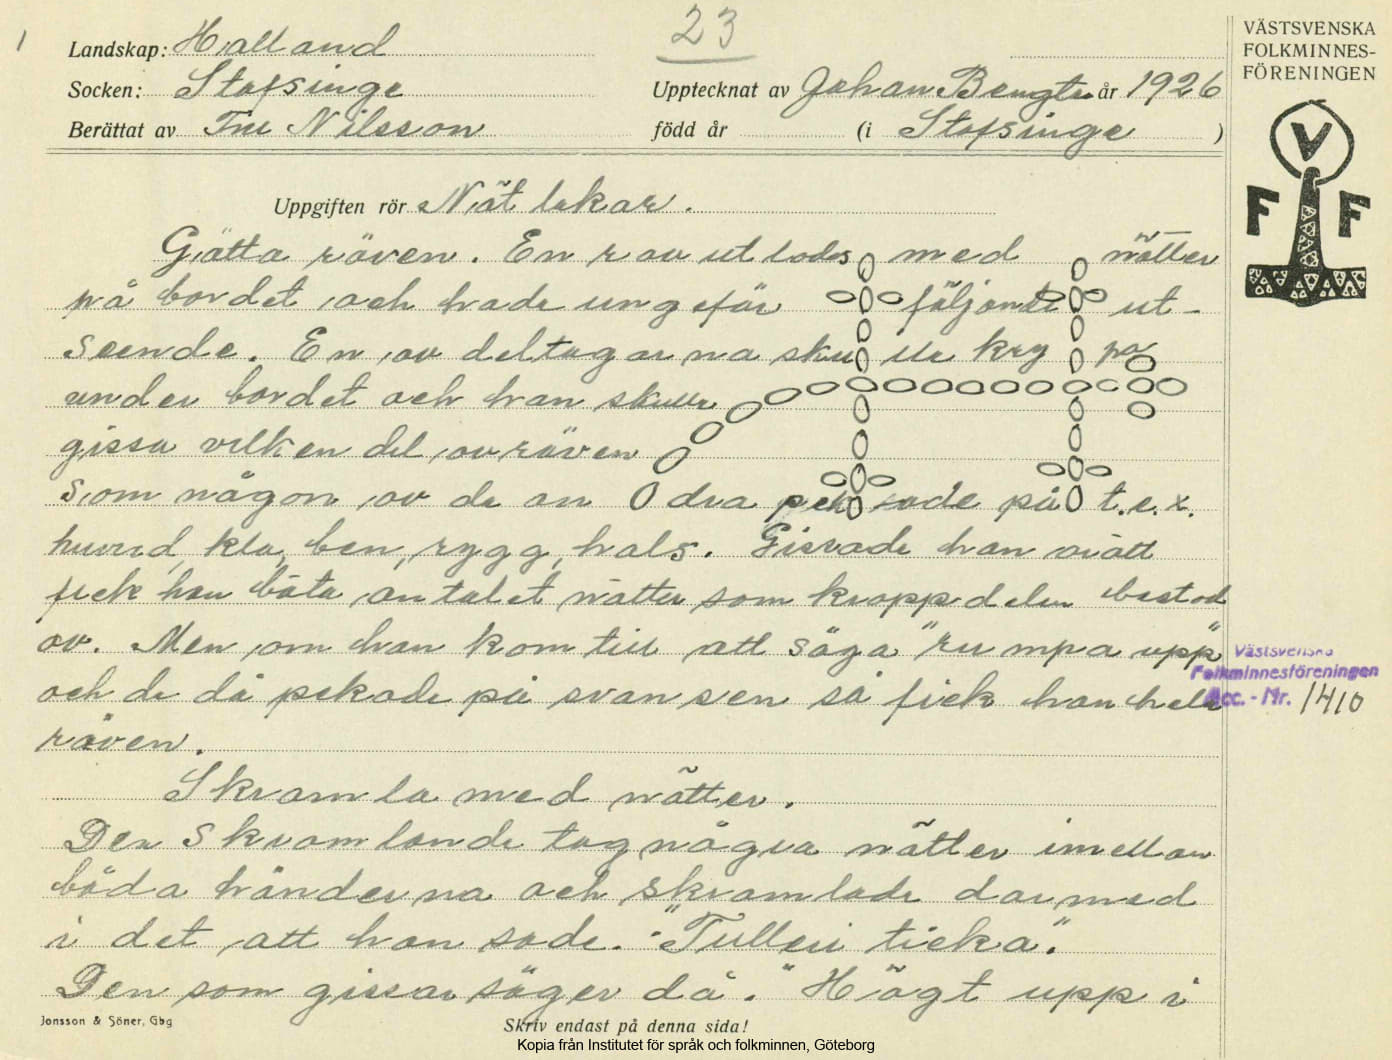 1
23
VÄSTSVENSKA
FOLKMINNES-
FÖRENINGEN
Landskap: Halland
Socken: Stafsinge
Upptecknat av Johan Bengts. år 1926
Berättat av Fru Nilsson född år (i Stafsinge )
V
F F
Uppgiften rör Nöt lekar.
Gätta räven. En rav ut lades med nötter
på bordet, och hade ungefär följande ut-
seende. En av deltagarna skulle kry pa
under bordet och han skulle
gissa vilken del av räven
som någon av de an dra pekade på t.e.x.
huvud, klo, ben, rygg, hals. Gissade han rätt
fick han böta antalet nötter som kroppdelen bestod
av. Men om han kom till att säga "rumpa upp"
och de då pekade på svansen så fick han hela
räven.
Västsvenska
Folkminnesföreningen
Acc. - Nr. 1410
Skramla med nötter.
Den skramlande tog några nötter imellan
båda händerna och skramlade darmed
i det att han sade. "Tulleri ticka".
Den som gissar säger då. "Högt upp i
Jonsson & Söner, Gbg
Skriv endast på denna sida!
Kopia från Institutet för språk och folkminnen, Göteborg